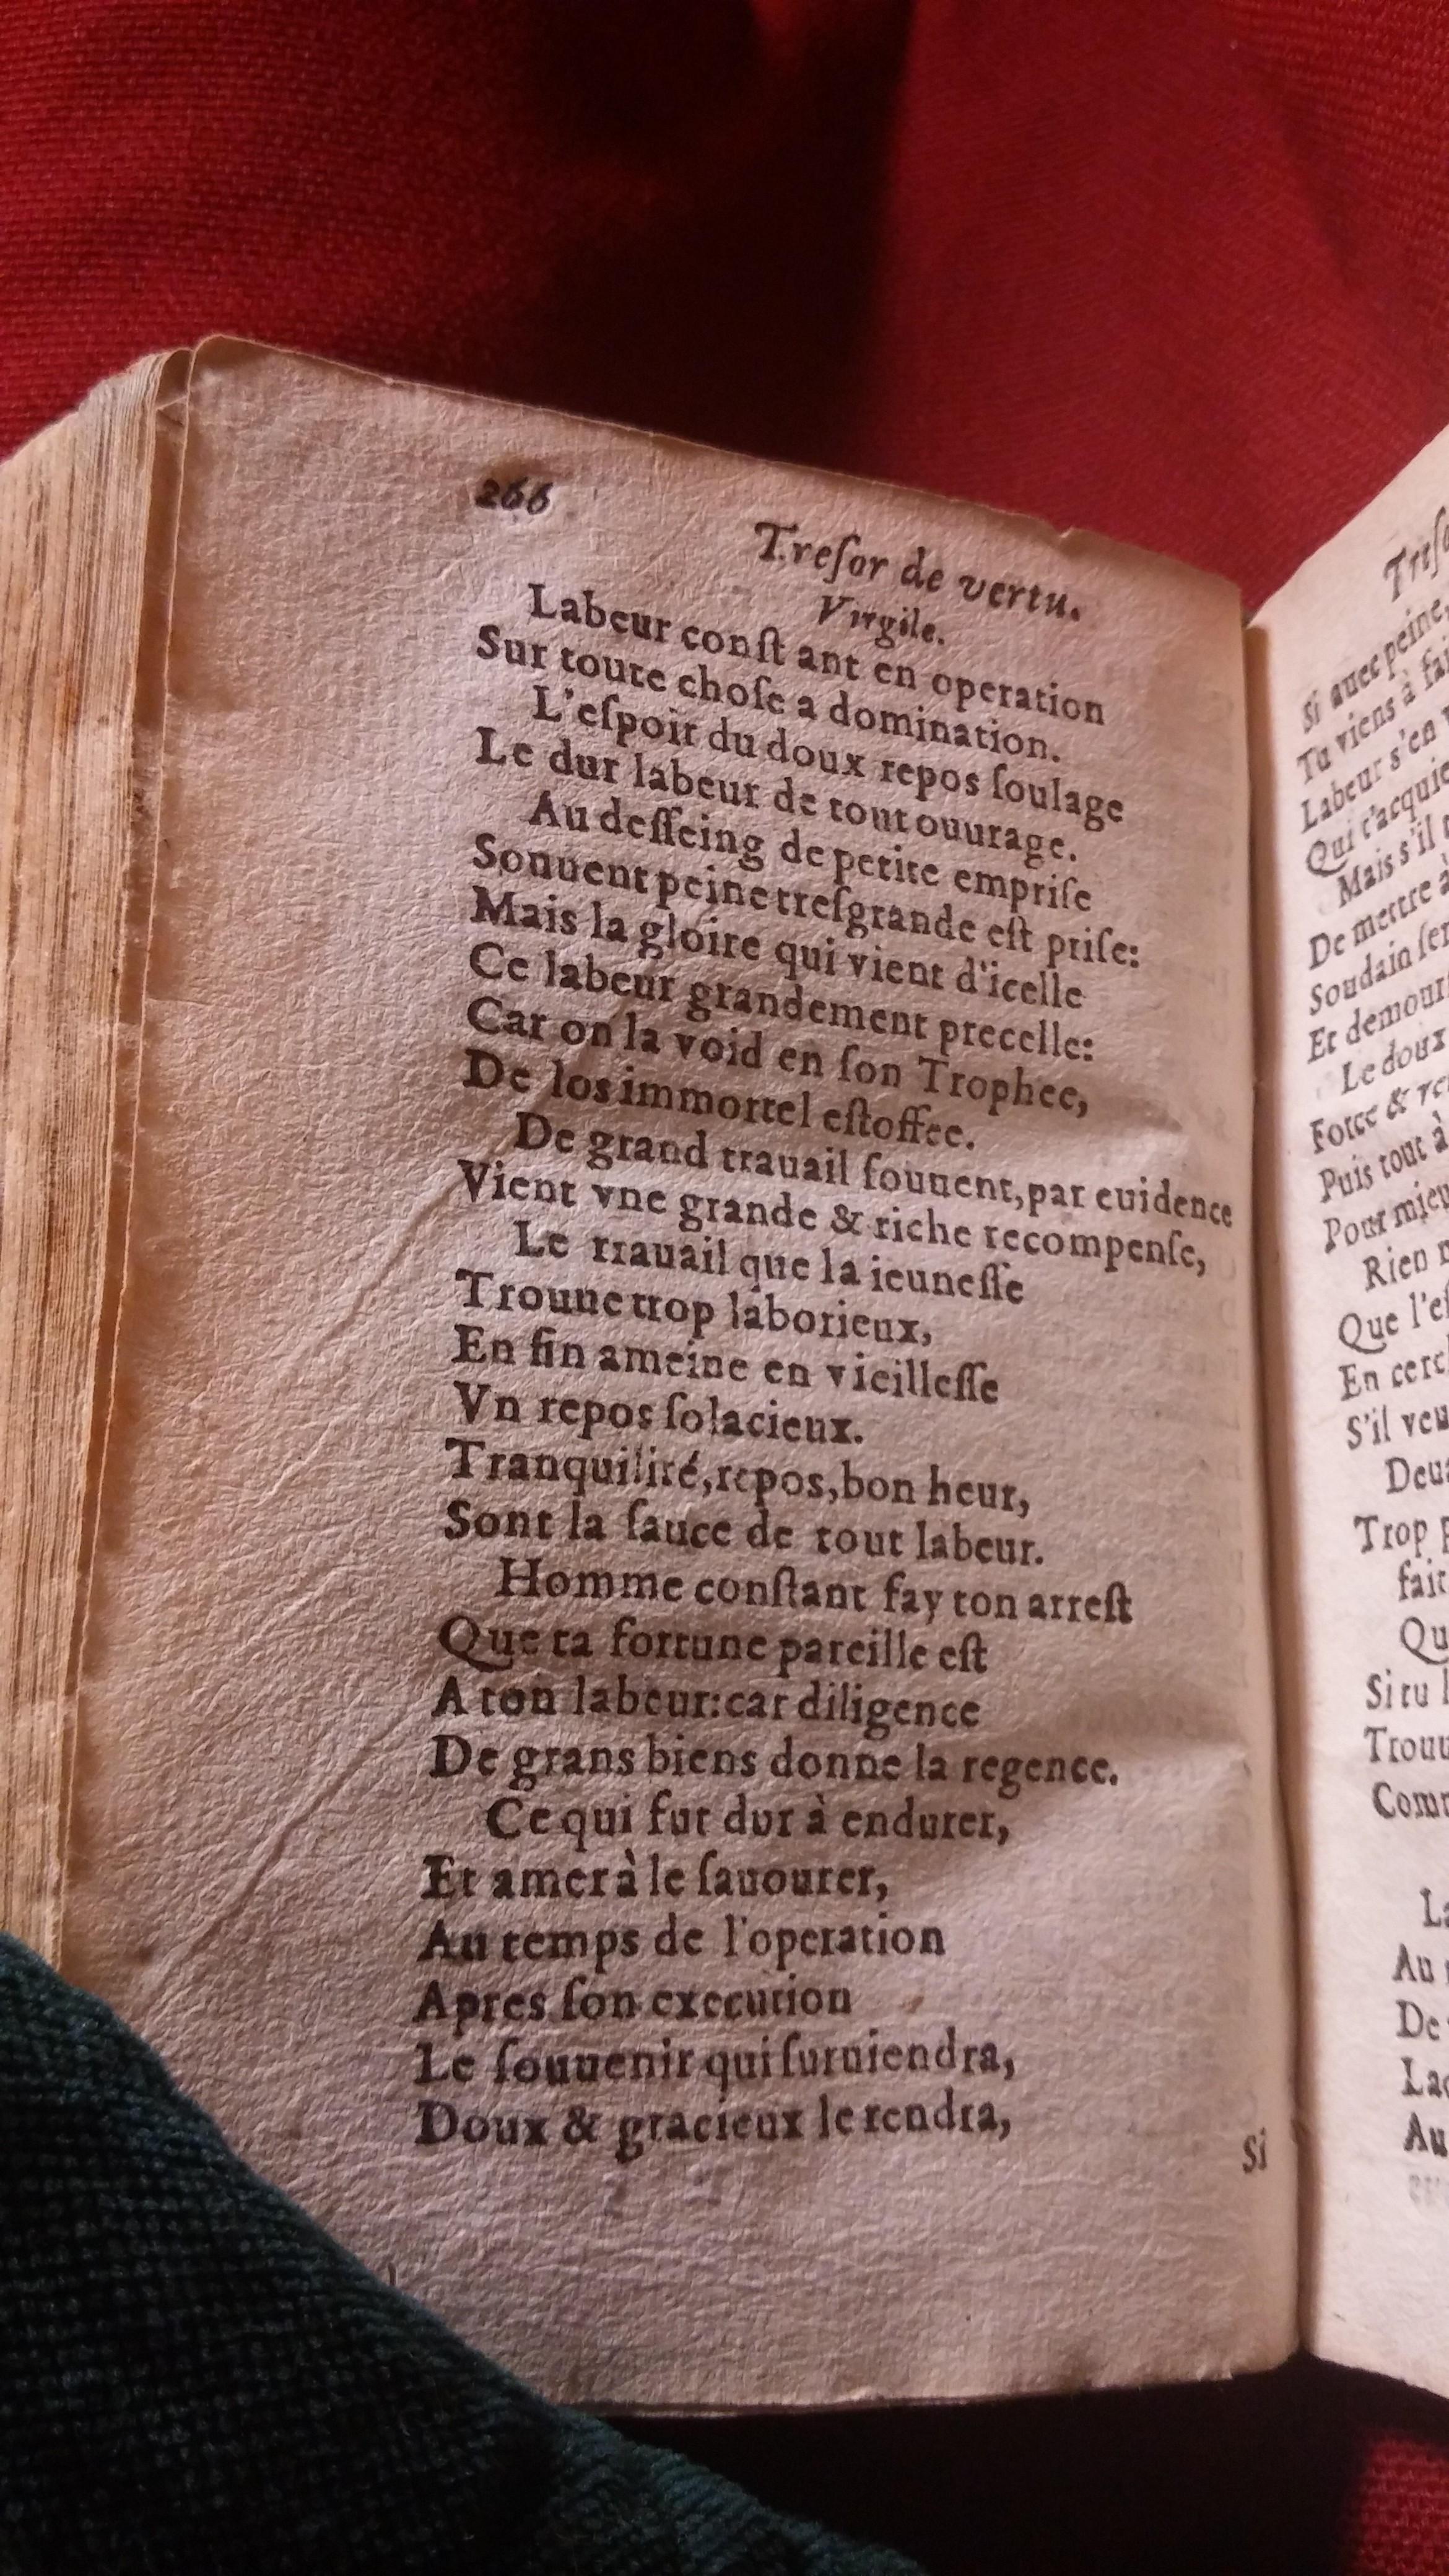 266
Treſor de vertu.
Virgile.
Labeur conſt ant en operation
Sur toute choſe a domination.
L'eſpoir du doux repos ſoulage
Le dur labeur de tout ouurage.
Au deſſeing de petite empriſe
Souuent peine treſgrande eſt priſe:
Mais la gloire qui vient d'icelle
Ce labeur grandement precelle:
Car on la void en ſon Trophee,
De los immortel eſtoffee.
De grand trauail ſouuent, par euidence
Vient vne grande & riche recompenſe,
Le trauail que la ieuneſſe
Trouue trop laborieux,
En fin ameine en vieilleſſe
Vn repos ſolacieux.
Tranquilité, repos, bon heur,
Sont la ſauce de tout labeur.
Homme conſtant fay ton arreſt
Que ta fortune pareille eſt
A ton labeur: car diligence
De grans biens donne la regence.
Ce qui fut dur à endurer,
Et amer à le ſauourer,
Au temps de l'operation
Apres ſon execution
Le ſouuenir qui ſuruiendra,
Doux & gracieux le rendra,
Si
Si auec peine,
Tu viens à
Labeur s'en
Qui t'acquie
Mais s'il
De mettre
Soudain
Et demour
Le doux
Force &
Puis tout à
Pour
Rien
Que
En
S'il
Trop
Qu
Si tu
Trouu
Com
La
Au
De
Au